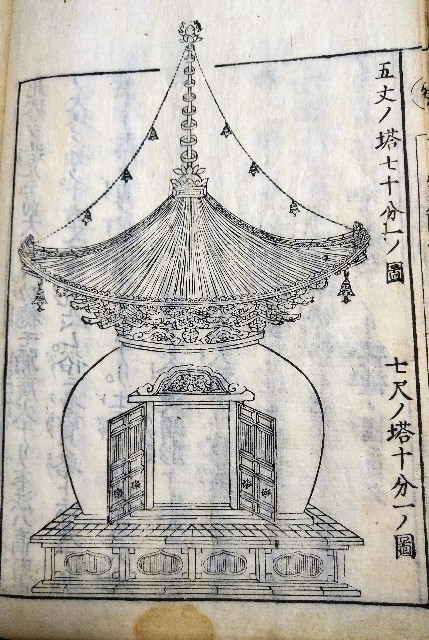 五丈ノ塔七十分一ノ圖
七尺ノ塔十分一ノ圖